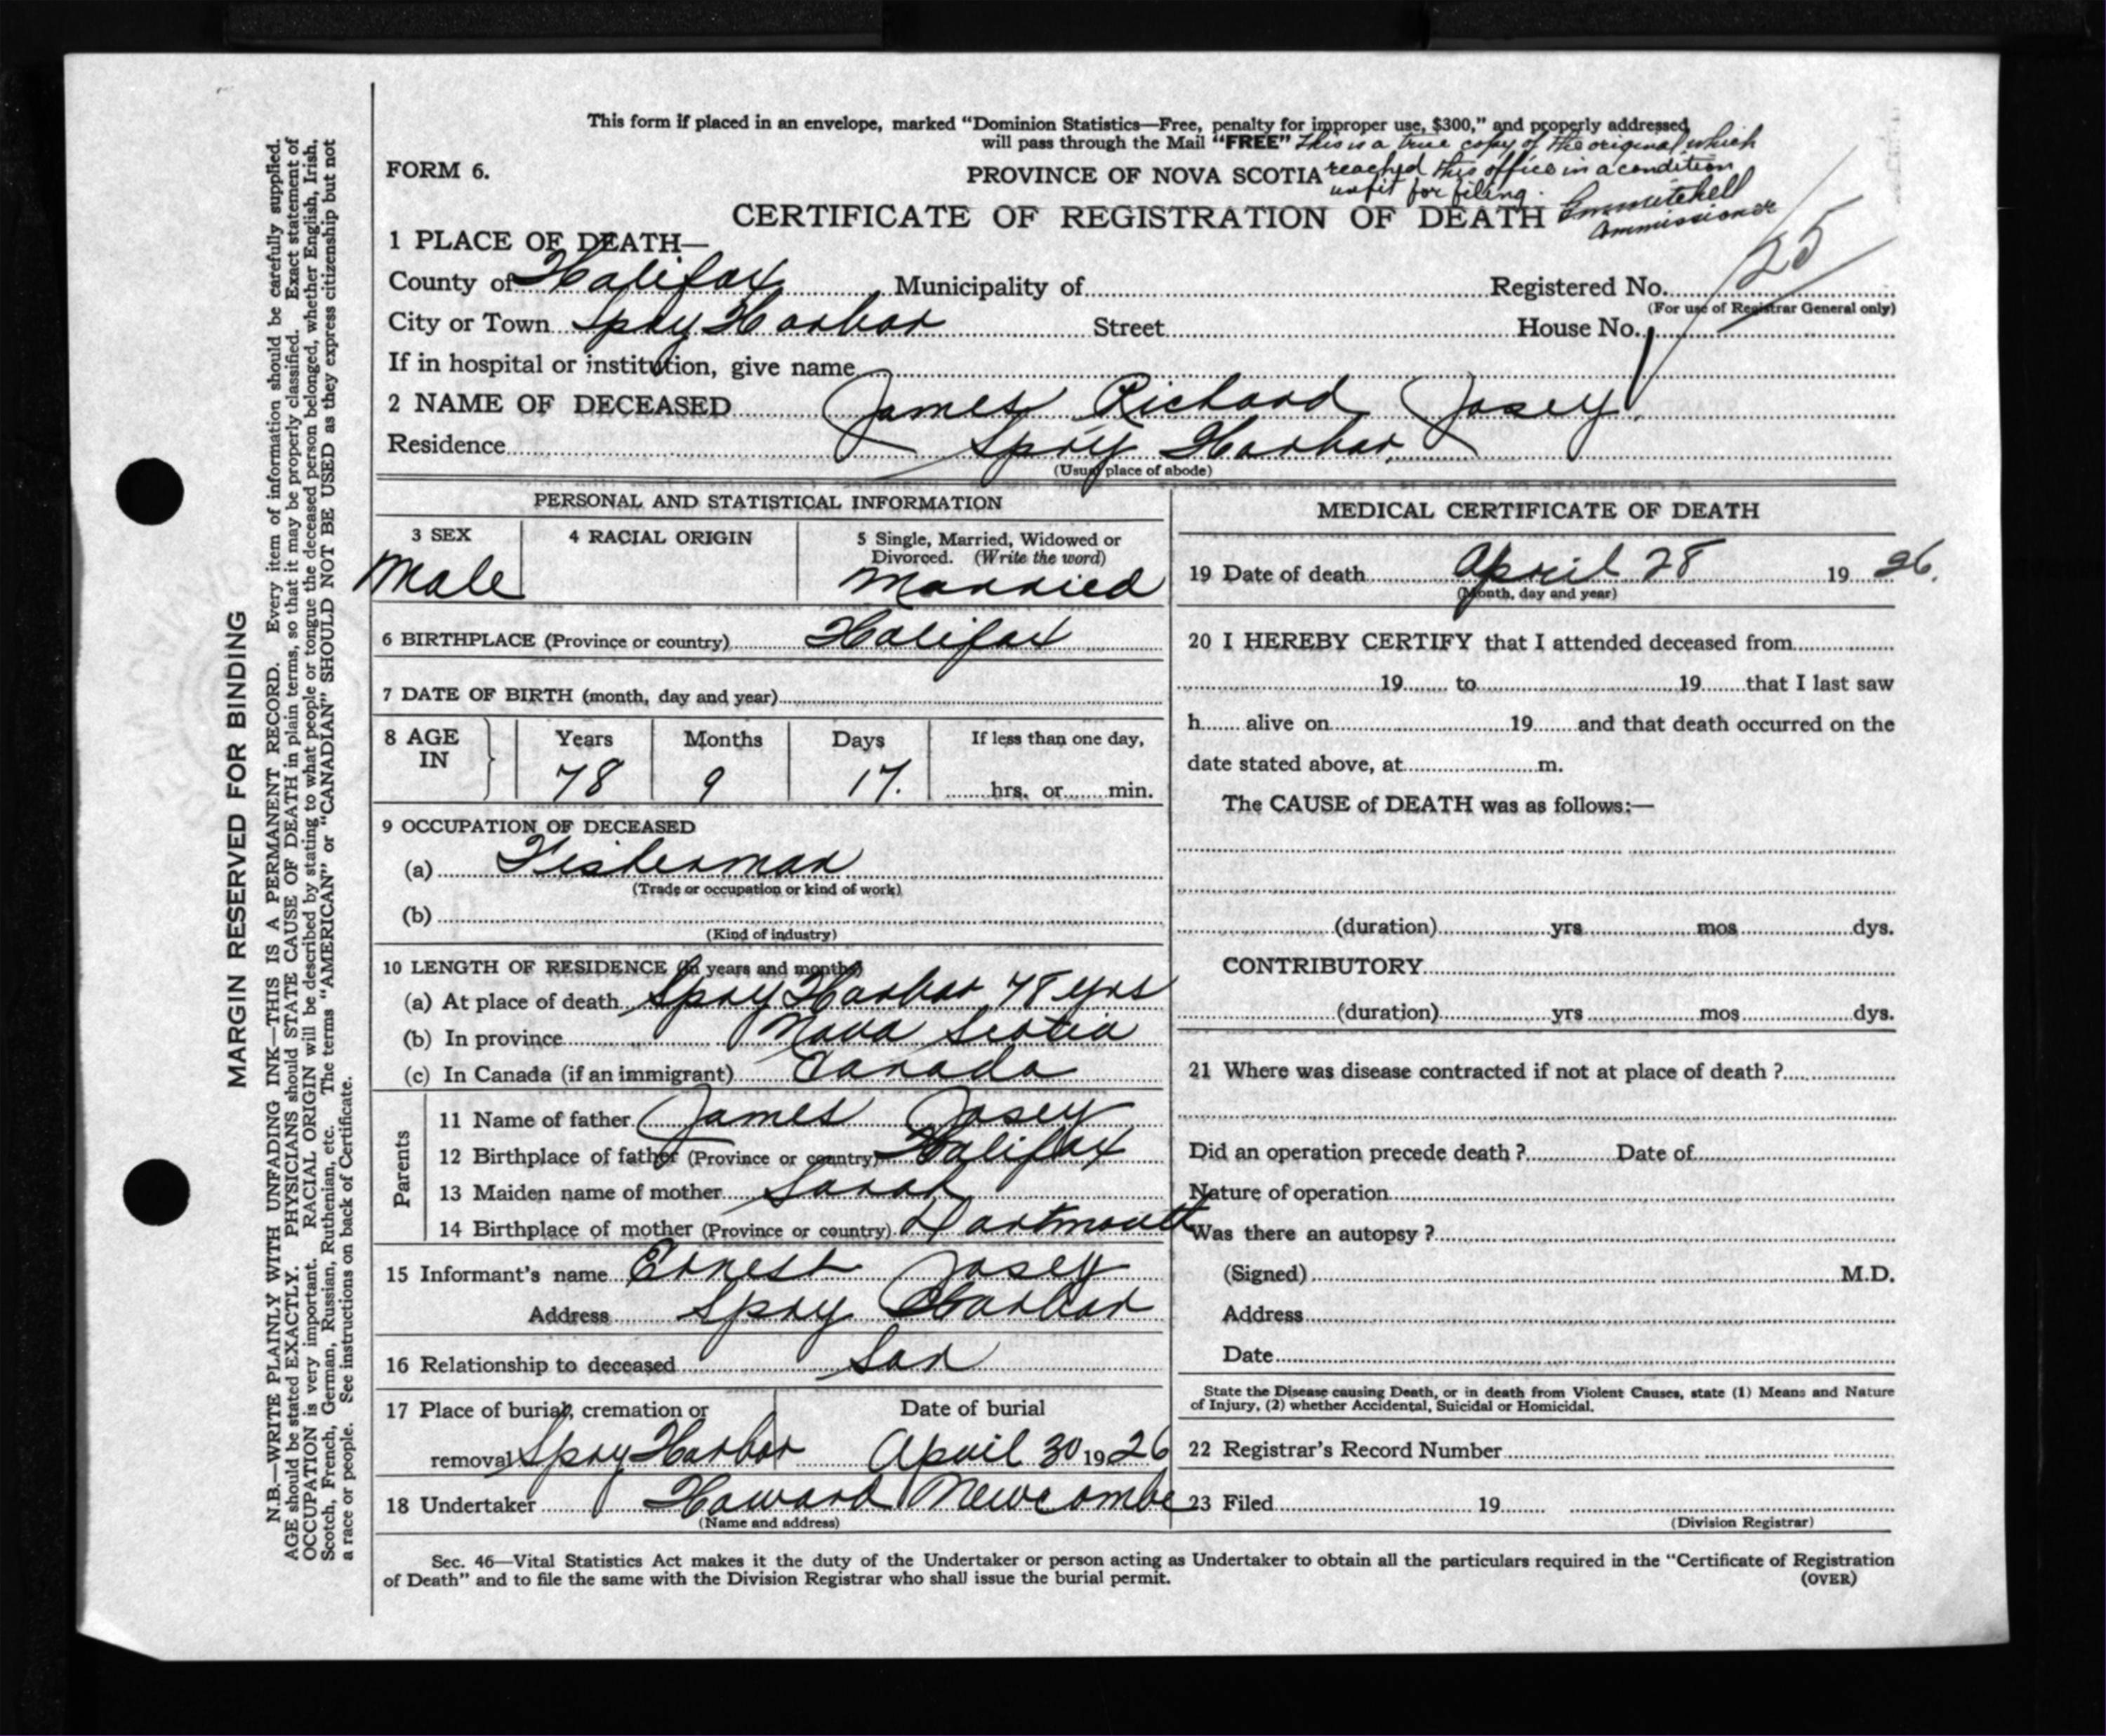 This form if placed in an envelope, marked "Dominion Statistics—Free, penalty for improper use, $300," and properly addressed
will pass through the Mail "FREE" This is a true copy of the original which
FORM 6.
PROVINCE OF NOVA SCOTIA reached this office in a condition
unfit for filing.
CERTIFICATE OF REGISTRATION OF DEATH
Commissioner
1 PLACE OF DEATH—
County of Halifax Municipality of Registered No. 25
(For use of Registrar General only)
City or Town Spry Harbor Street House No.
If in hospital or institution, give name
2 NAME OF DECEASED James Richard Josey
Residence Spry Harbor
(Usual place of abode)
PERSONAL AND STATISTICAL INFORMATION
3 SEX 4 RACIAL ORIGIN 5 Single, Married, Widowed or
Divorced. (Write the word)
Male Married
6 BIRTHPLACE (Province or country) Halifax
7 DATE OF BIRTH (month, day and year)
8 AGE IN Years Months Days If less than one day,
78 9 17. hrs. or min.
9 OCCUPATION OF DECEASED
(a) Fisherman
(Trade or occupation or kind of work)
(b)
(Kind of industry)
10 LENGTH OF RESIDENCE (In years and months)
(a) At place of death Spry Harbor 78 yrs
(b) In province Nova Scotia
(c) In Canada (if an immigrant) Canada
Parents
11 Name of father James Josey
12 Birthplace of father (Province or country) Halifax
13 Maiden name of mother Sarah
14 Birthplace of mother (Province or country) Dartmouth
15 Informant's name Ernest Josey
Address Spry Harbor
16 Relationship to deceased Son
17 Place of burial, cremation or Date of burial
removal Spry Harbor April 30 1926
18 Undertaker Howard Newcombe
(Name and address)
MEDICAL CERTIFICATE OF DEATH
19 Date of death April 28 19 26.
(Month, day and year)
20 I HEREBY CERTIFY that I attended deceased from
19 to 19 that I last saw
h alive on 19 and that death occurred on the
date stated above, at m.
The CAUSE of DEATH was as follows:—
(duration) yrs mos dys.
CONTRIBUTORY
(duration) yrs mos dys.
21 Where was disease contracted if not at place of death ?
Did an operation precede death ? Date of
Nature of operation
Was there an autopsy ?
(Signed) M.D.
Address
Date
State the Disease causing Death, or in death from Violent Causes, state (1) Means and Nature
of Injury, (2) whether Accidental, Suicidal or Homicidal.
22 Registrar's Record Number
23 Filed 19
(Division Registrar)
Sec. 46—Vital Statistics Act makes it the duty of the Undertaker or person acting as Undertaker to obtain all the particulars required in the "Certificate of Registration
of Death" and to file the same with the Division Registrar who shall issue the burial permit. (OVER)
MARGIN RESERVED FOR BINDING
N.B.—WRITE PLAINLY WITH UNFADING INK—THIS IS A PERMANENT RECORD. Every item of information should be carefully supplied.
AGE should be stated EXACTLY. PHYSICIANS should STATE CAUSE OF DEATH in plain terms, so that it may be properly classified. Exact statement of
OCCUPATION is very important. RACIAL ORIGIN will be described by stating to what people or tongue the deceased person belonged, whether English, Irish,
Scotch, French, German, Russian, Ruthenian, etc. The terms "AMERICAN" or "CANADIAN" SHOULD NOT BE USED as they express citizenship but not
a race or people. See instructions on back of Certificate.